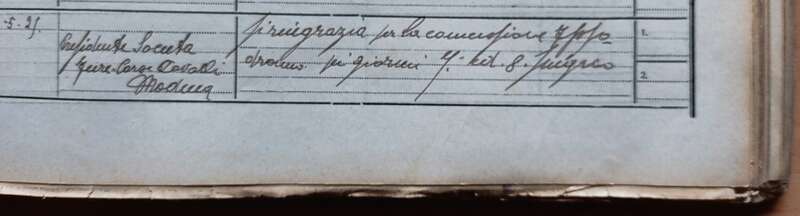 -5-25.
Presidente Società
Fiere-Corse Cavalli
Modena
Si ringrazia per la concessione Ippo-
dromo pei giorni 7. ed 8. Giugno
1.
2.